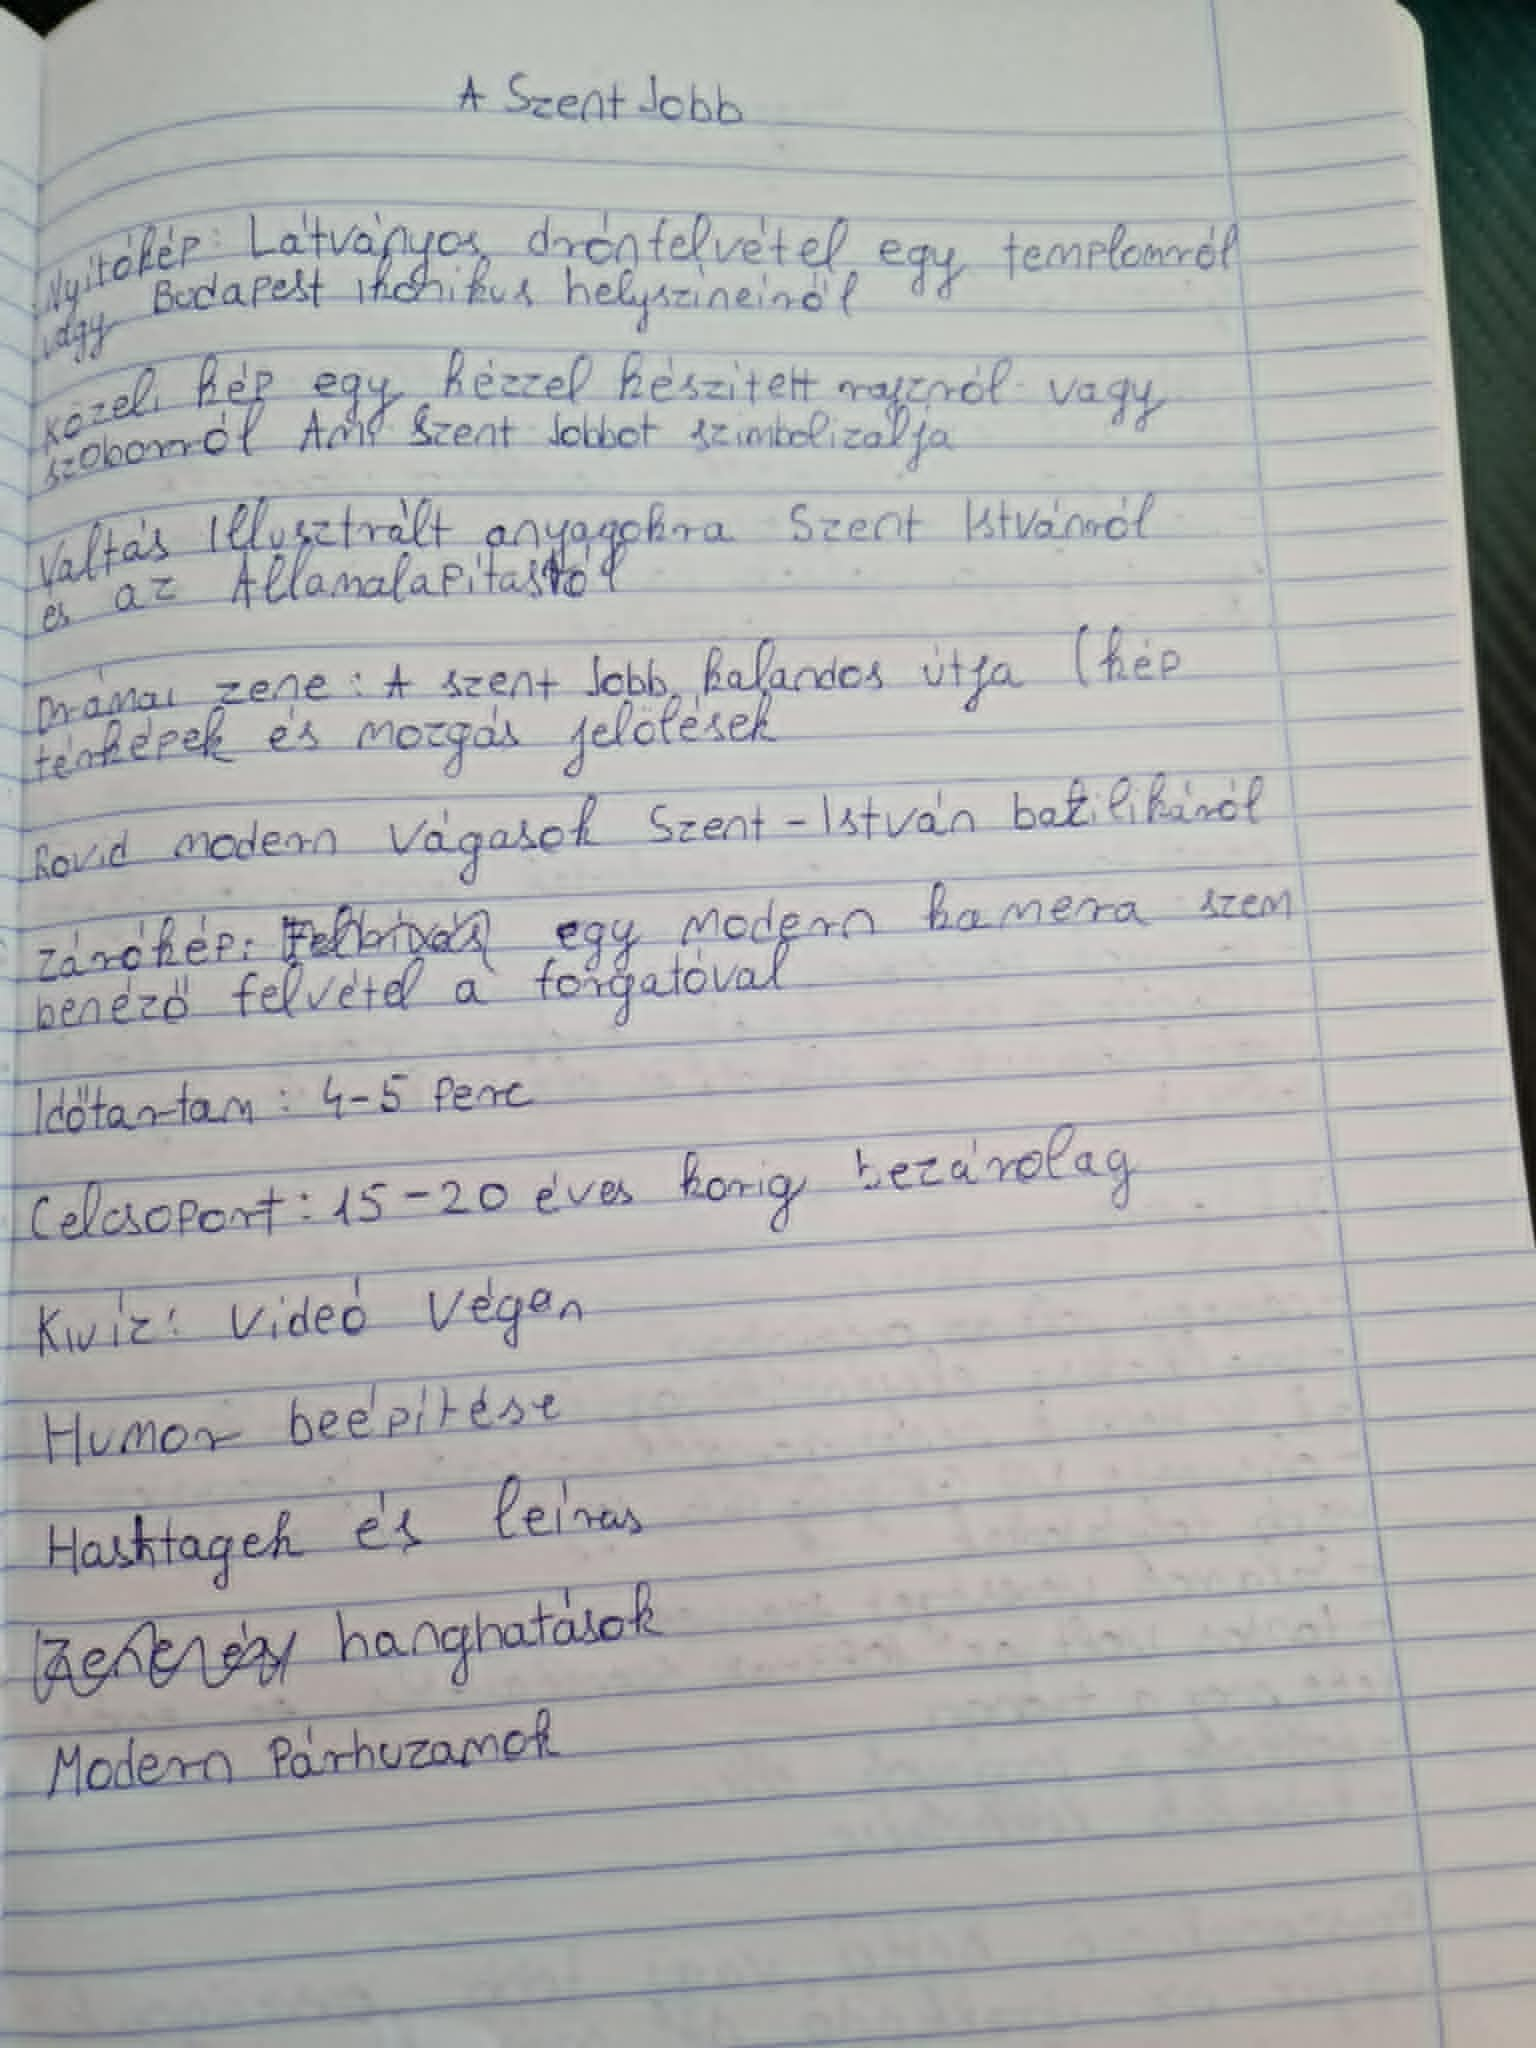 A Szent Jobb
Nyitókép: Látványos drónfelvétel egy templomról
vagy Budapest ikonikus helyszíneiről
Közeli kép egy kézzel készített rajzról vagy
szoborról Ami Szent Jobbot szimbolizálja
Valtás Illusztrált anyagokra Szent Istvánról
és az Államalapítástól
Drámai zene: A szent Jobb kalandos útja (kép
térképek és mozgás jelölések
Rovid modern vágasok Szent-István bazilikáról
Zárókép: egy modern kamera szem
benéző felvétel a forgatóval
Időtartam: 4-5 Perc
Célcsoport: 15-20 éves korig bezárolag
Kvíz: Videó Végén
Humor beépítése
Hashtagek és leíras
hanghatások
Modern Párhuzamok